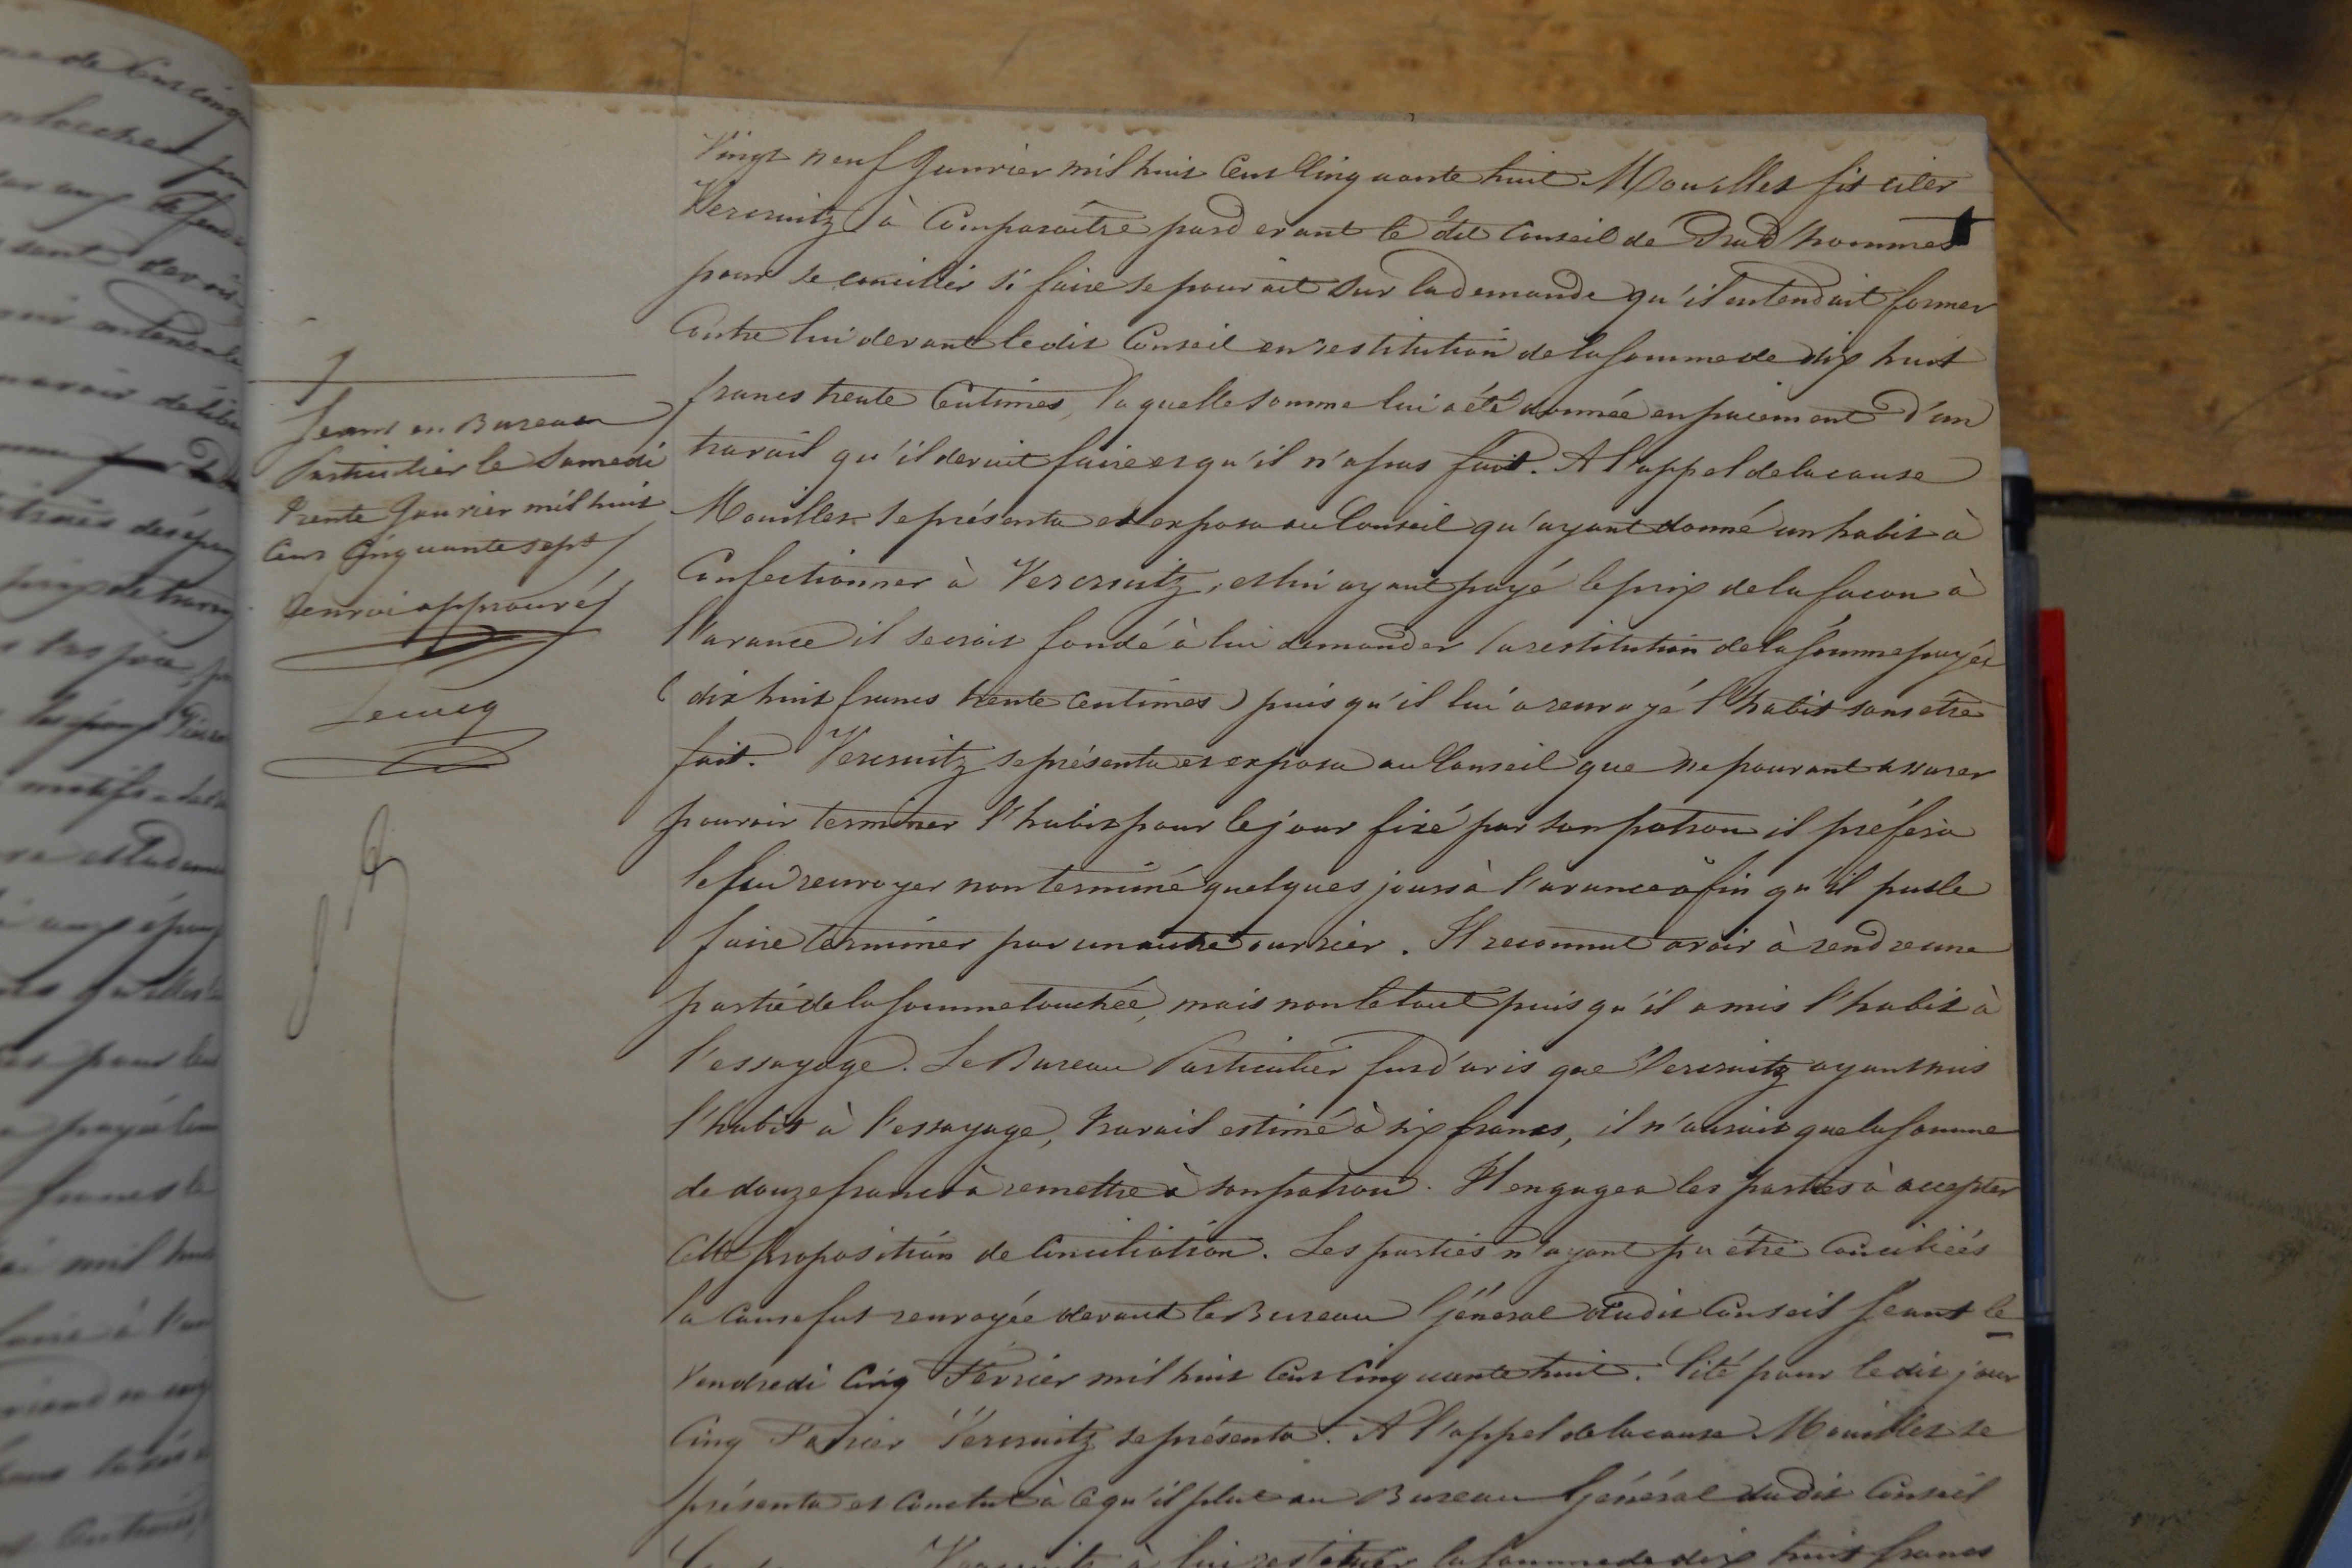 Séant en Bureau
Particulier le Samedi
trente Janvier mil huit
cent cinquante sept
Renvoi approuvé
Lecucq
Vingt neuf Janvier mil huit cent cinquante huit Mouillet fit citer
Veresnitz à comparaître pard evant le dit conseil de Prud'hommes
pour se concilier si faire se pourait sur la demande qu'il entendait former
contre lui devant le dit Conseil en restitution de la somme de dix huit
francs trente centimes, laquelle somme lui a été donnée en paiement d'un
travail qu'il devait faire et qu'il n'a pas fait. A l'appel de la cause
Mouillet se présenta et exposa au Conseil qu'ayant donné un habit à
confectionner à Veresnitz, et lui ayant payé le prix de la facon à
l'avance il serait fondé à lui demander la restitution de la somme payée
(dix huit francs trente centimes) puisqu'il lui a renvoyé l'habit sans être
fait. Veresnitz se présenta et exposa au Conseil que ne pouvant assurer
pouvoir terminer l'habit pour le jour fixé par son patron il préféra
le lui renvoyer non terminé quelques jours à l'avance afin qu'il put le
faire terminer par un autre ouvrier. Il reconnut avoir à rendre une
partie de la somme touchée, mais non le tout puisqu'il a mis l'habit à
l'essayage. Le Bureau Particulier fut d'avis que Veresnitz ayant mis
l'habit à l'essayage, travail estimé à six francs, il n'aurait que la somme
de douze francs à remettre à son patron. Il engagea les parties à accepter
cette proposition de conciliation. Les parties n'ayant pu être conciliées
la cause fut renvoyée devant le Bureau Général dudit Conseil séant le
Vendredi cinq Février mil huit cent cinquante huit. Cité pour le dit jour
cinq Février Veresnitz se présenta. A l'appel de la cause Mouillet se
présenta et conclut à ce qu'il plut au Bureau Général dudit Conseil
à lui restituer la somme de dix huit francs